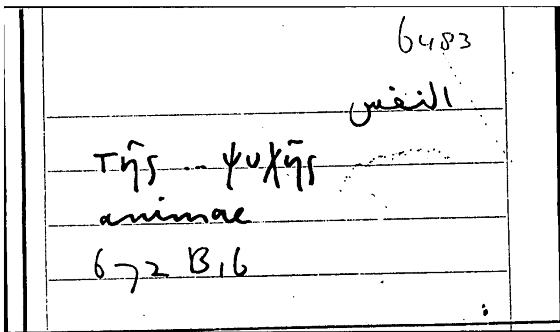 6483
النفس
τῆς ... ψυχῆς
animae
672 B, 6